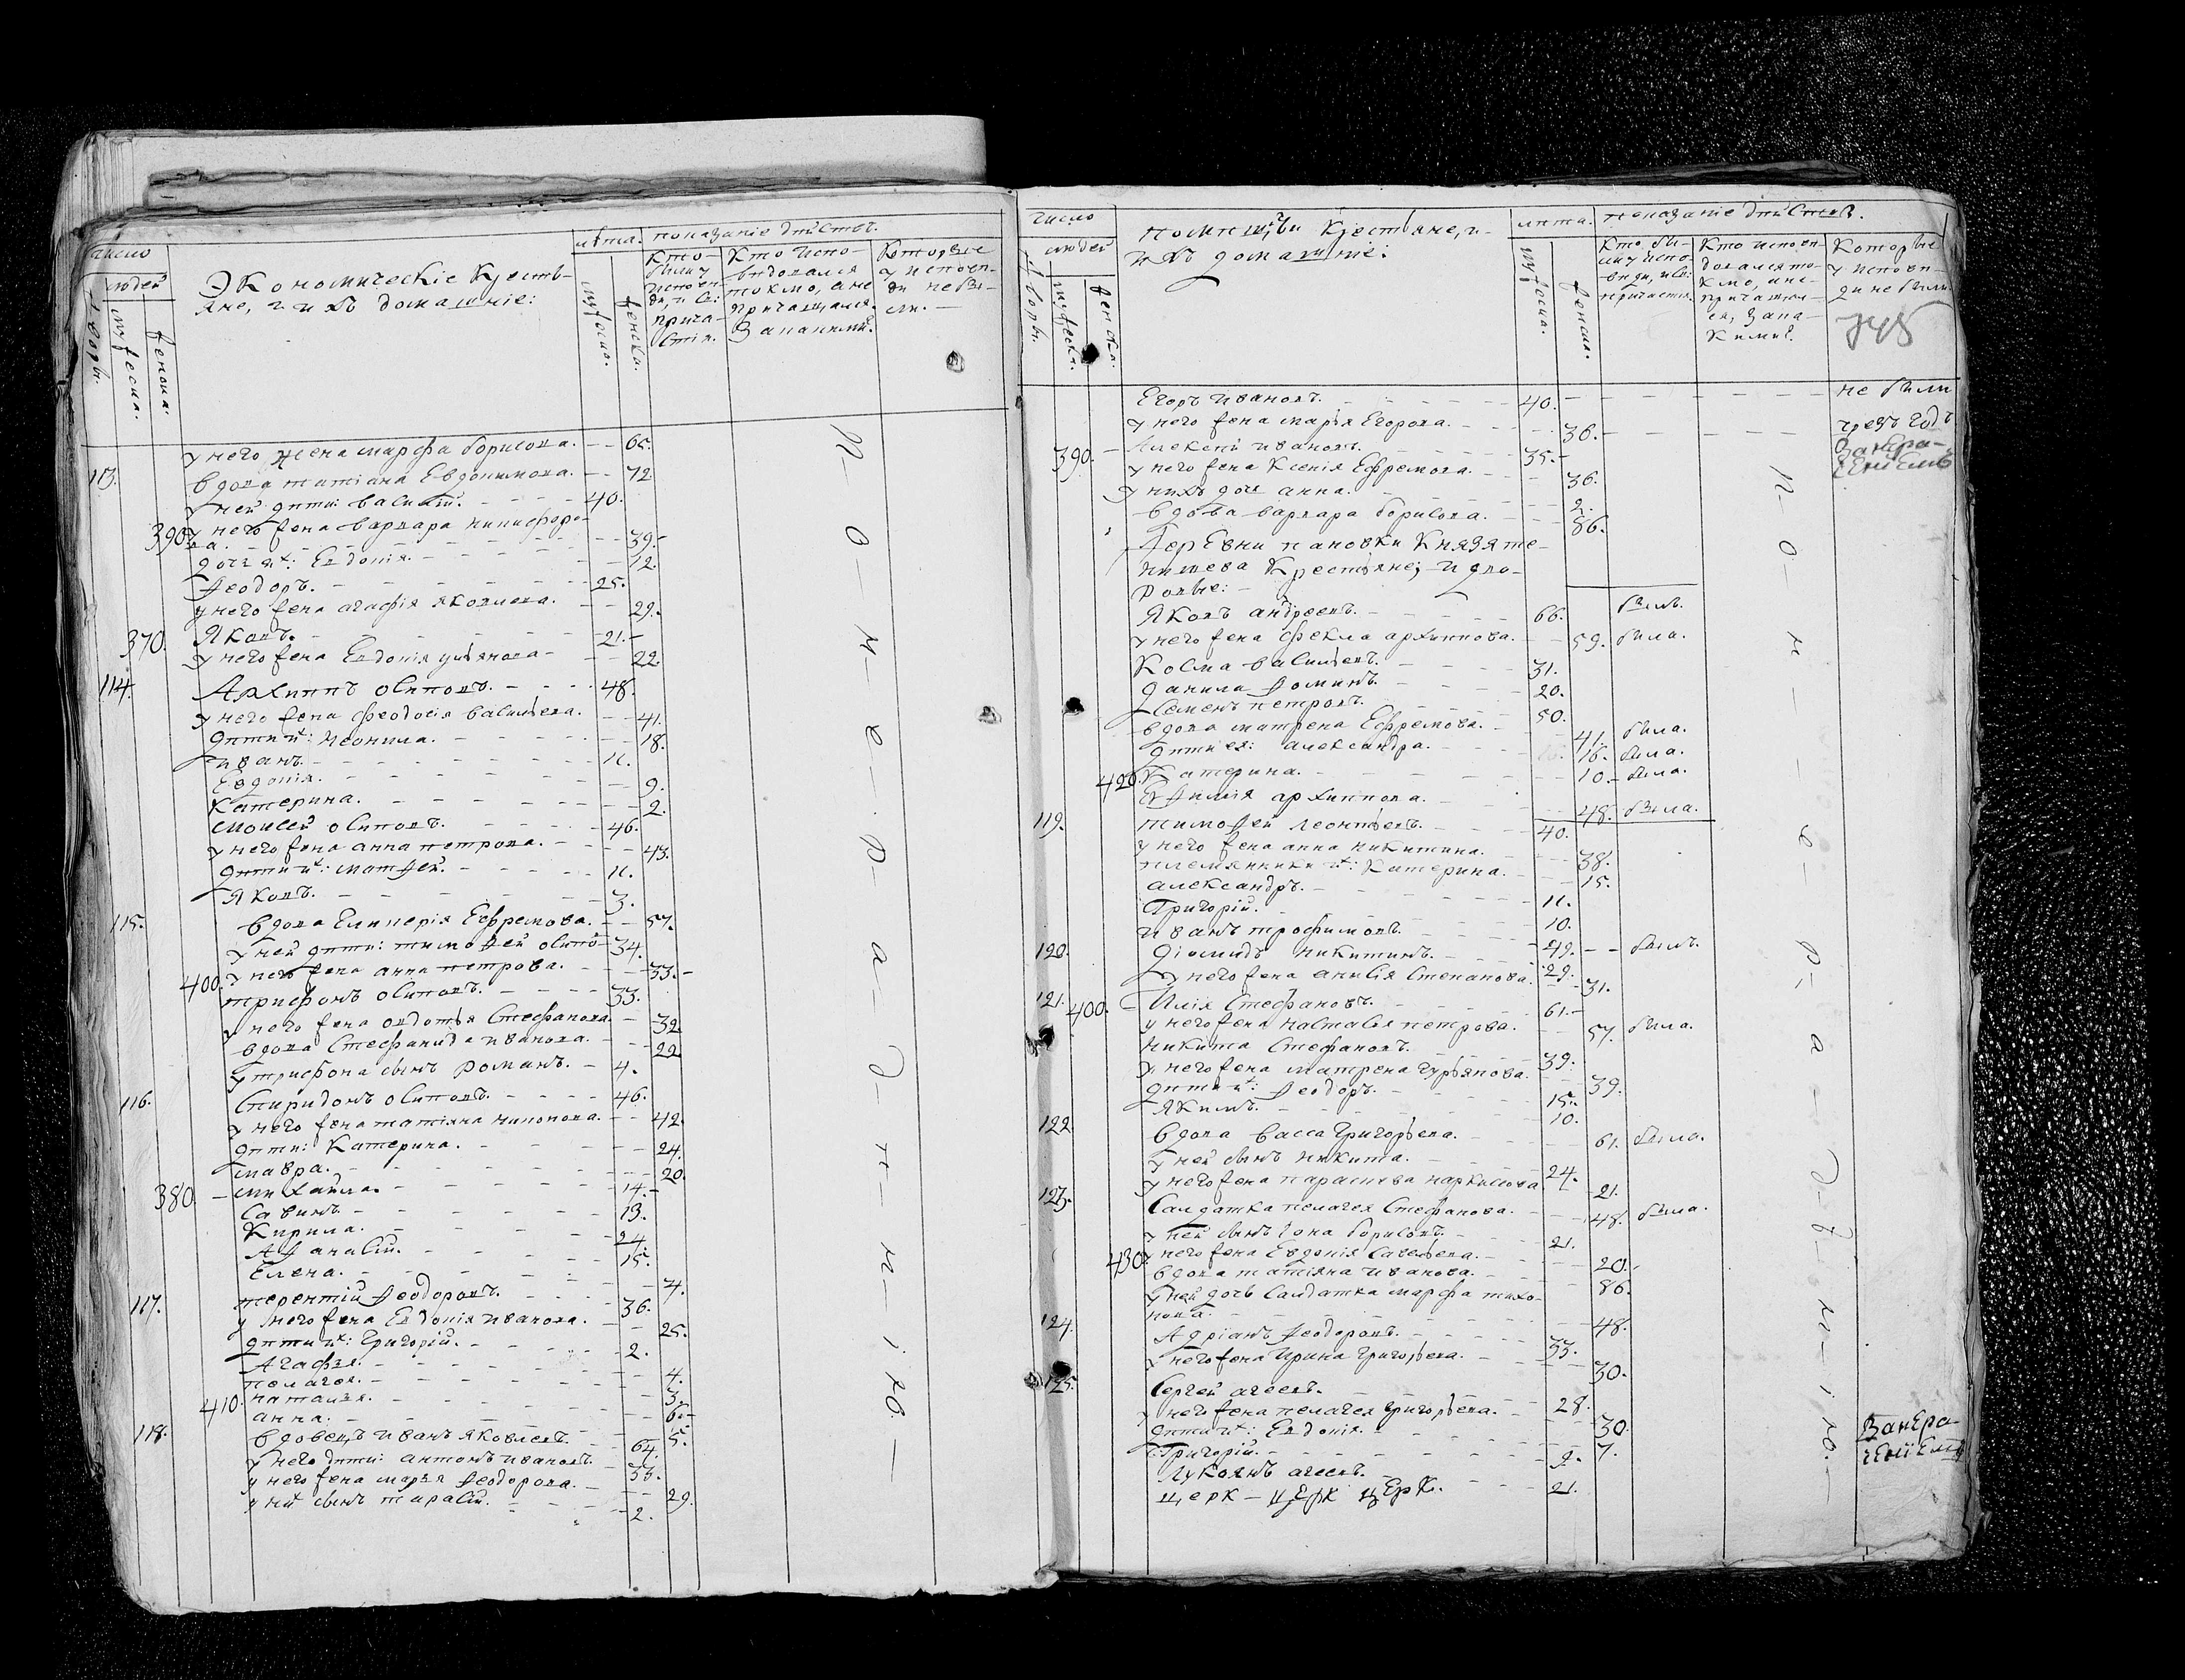 число
людей
дворы.
мужеска.
женска.
Экономическіе Крестья-
яне, и ихъ домашніе:
лѣта.
мужеско.
женска.
показаніе дѣйствъ.
Кто
были у
исповѣ-
ди, и Св:
прича-
стія.
Кто испо-
вѣдовался
токмо, а не
причащался.
За какимъ.
Которые
у исповѣ-
ди не бы-
ли.
у него жена марфа борисова. 65.
113. вдова татіана Евдокимова. 72.
у ней дѣти: василій. 40.
390 у него жена варвара никифоро-
ва. 39.
дочь их: Евдокія. 12.
Феодоръ. 25.
у него жена агафія яковлева. 29.
370. Яковъ. 21.
у него жена Евдокія ульянова 22.
114. Архиппъ осиповъ. 48.
у него жена феодосія васильева. 41.
дѣти их: неонила. 18.
иванъ. 11.
Евдокія. 9.
Катерина. 2.
моисей осиповъ. 46.
у него жена анна петрова. 43.
дѣти их: матфей. 11.
Яковъ. 3.
115. вдова Еликерія Ефремова. 57.
у ней дѣти: тимофей осипо 34.
400. у него жена анна петрова. 33.
трифонъ осиповъ. 33.
у него жена овдотья Стефанова. 32.
вдова Стефанида иванова. 22.
у трифона сынъ романъ. 4.
116. Спиридонъ осиповъ. 46.
у него жена татіяна никонова. 42.
дѣти: Катерина. 24.
мавра. 20.
380 михайла. 14.
Савинъ 13.
Кирила. 24
Афанасій. 15.
Елена. 7.
117. терентій Феодоровъ. 36.
у него жена Евдокія иванова. 25.
дѣти их: Григорій. 2.
Агафья. 4.
пелагея. 3.
410. наталья. 6.
анна. 5.
118. вдовецъ иванъ яковлевъ. 64.
у него дѣти: антонъ ивановъ 33.
у него жена марья Феодорова. 29.
у них сынъ тарасій. 2.
п-о-м-е-р-а-д-ѣ-н-ію.
число
людей
дворы.
мужеск.
женска.
помѣщичьи Крестьяне, и
ихъ домашніе:
лѣта.
мужеска.
женска.
показаніе дѣйствъ.
Кто бы-
ли у испо-
вѣди, и св:
причастія
Кто исповѣ-
довался то-
кмо, а не
причащал-
ся, За ка-
кимъ.
Которые
у исповѣ-
ди не были
Егоръ ивановъ. 40. не были
у него жена марья Егорова. 36. чрезъ годъ
390. Алексѣй ивановъ. 35.
у него жена Ксенія Ефремова. 36.
у нихъ дочь анна. 2.
вдова варвара борисова. 86.
деревни пановки Князя те-
нишева Крестьяне, и дво-
ровые:
Яковъ андреевъ. 66. былъ.
у него жена фекла архиппова. 59. была.
Косма васильевъ. 31.
данила Фоминъ. 20.
Семенъ петровъ. 50.
вдова матрена Ефремова. 41. была.
дѣти ея: александра. 16. была.
420 Катерина. 10. была.
Евфимія архиппова. 48. была.
119. тимофей леонтьевъ. 40.
у него жена анна никитина. 38.
племянники их: Катерина. 15.
александръ. 11.
Григорій. 10.
иванъ трофимовъ. 49. былъ.
120. діомидъ никитинъ. 29.
у него жена анисія Степанова. 31.
121. 400. Илія Стефановъ. 61.
у него жена настасія петрова. 57. была.
никита Стефановъ. 39.
у него жена матрена гурьянова. 39.
дѣти их: Феодоръ. 15.
Якимъ. 10.
122. вдова васса Григорьева. 61. была.
у ней сынъ никита. 24.
у него жена парасковa наркисова 21.
123. Салдатка пелагея Стефанова. 48. была.
у ней сынъ Іона борисовъ. 21.
430 у него жена Евдокія Савельева. 20.
вдова татіяна иванова. 86.
у ней дочь Салдатка марфа тихо-
нова. 48.
124. Адріанъ Феодоровъ. 33.
у него жена Ирина Григорьева. 30.
125. Сергей агеевъ. 28.
у него жена пелагея Григорьева. 30.
дѣти их: Евдокія. 7.
Григорій. 2.
Лукоянъ агеевъ. 21.
церк — цЕрк цЕрк.